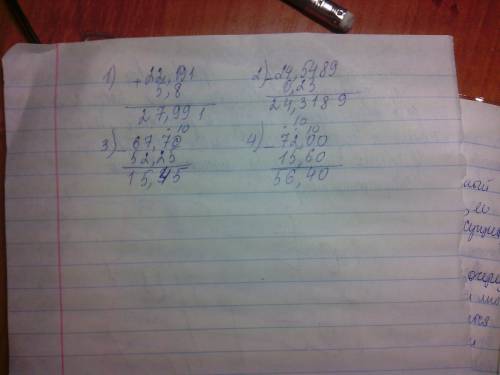 1) +22,191
5,8
27,991
2) -24,5489
0,23
24,3189
. 10
3) -67,70
52,25
15,45
. 10 10
4) -72,00
15,60
56,40